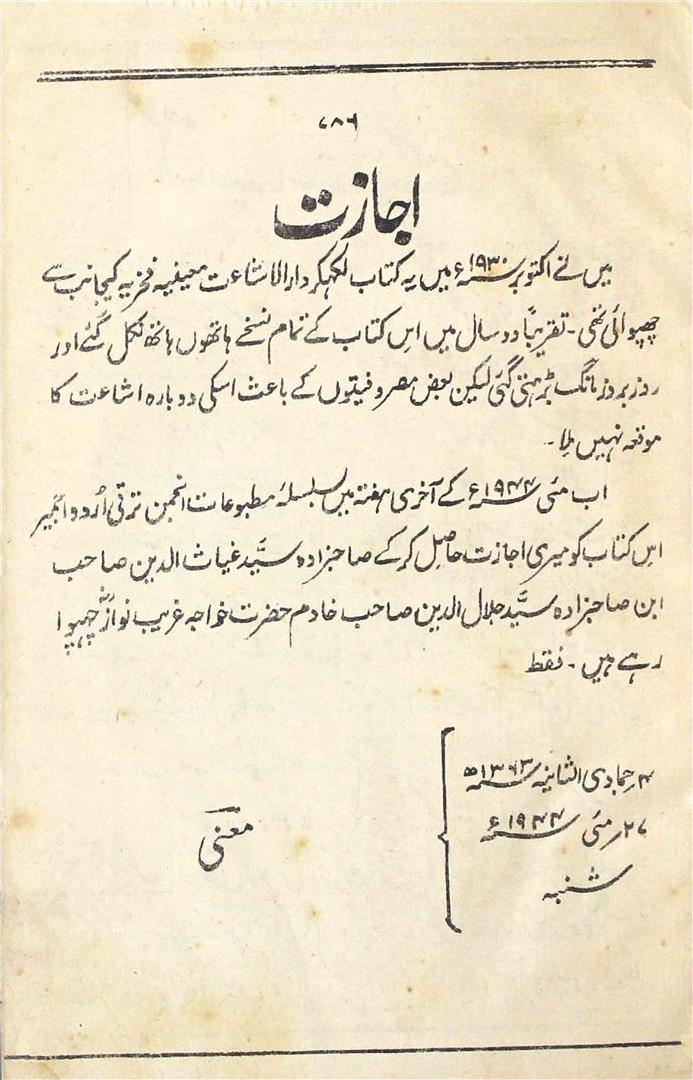 ۷۸۶
اجازت
میں نے اکتوبر ۱۹۳۰ء میں یہ کتاب لکھکر دارالاشاعت معینیہ فخریہ کیجانب سے
چھپوائی تھی۔ تقریباً دو سال میں اس کتاب کے تمام نسخے ہاتھوں ہاتھ نکل گئے اور
روز بروز مانگ بڑہتی گئی لیکن بعض مصروفیتوں کے باعث اسکی دوبارہ اشاعت کا
موقعہ نہیں ملا۔
اب مئی ۱۹۴۴ء کے آخری ہفتہ میں بسلسلۂ مطبوعات انجمن ترقی اُردو اجمیر
اس کتاب کو میری اجازت حاصل کر کے صاحبزادہ سیَّد غیاث الدین صاحب
ابن صاحبزادہ سیَّد جلال الدین صاحب خادم حضرت خواجہ غریب نوازؒ چھپوا
رہے ہیں۔ فقط
۴؍ جمادی الثانیہ ۱۳۶۳ھ
۲۷؍ مئی ۱۹۴۴ء
شنبہ
معنی